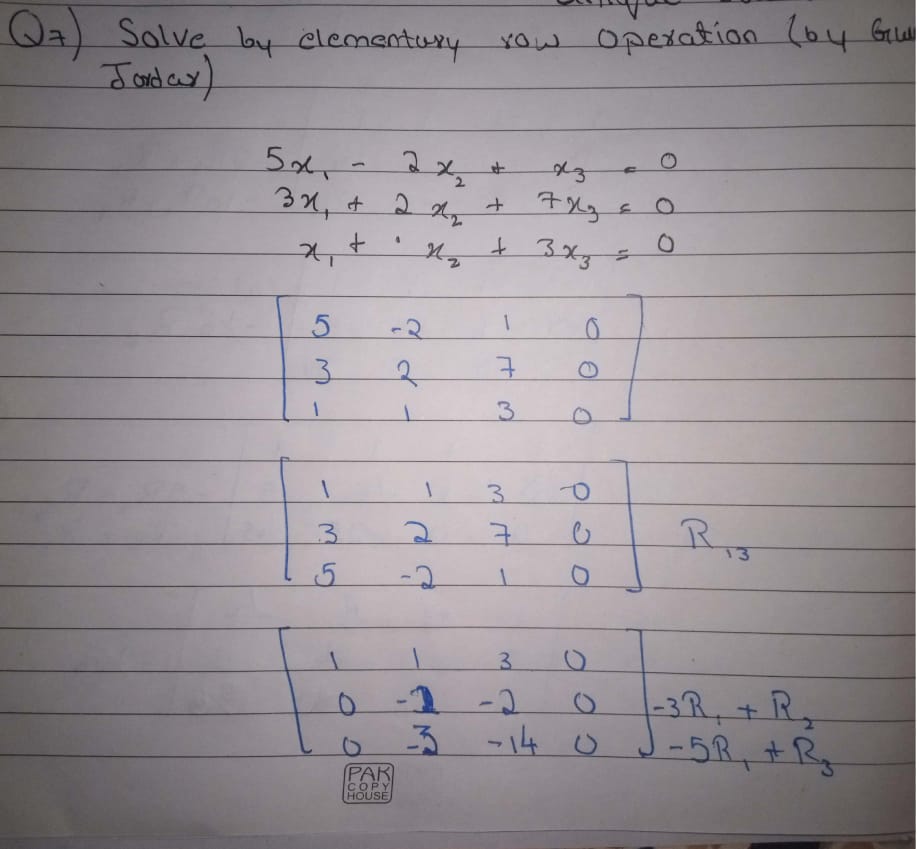 Q7) Solve by elementary row operation (by
Jordan)
5x₁ - 2x₂ + x₃ = 0
3x₁ + 2x₂ + 7x₃ = 0
x₁ + x₂ + 3x₃ = 0
5 -2 1 0
3 2 7 0
1 1 3 0
1 1 3 0
3 2 7 0 R₁₃
5 -2 1 0
1 1 3 0
0 -1 -2 0 -3R₁ + R₂
0 -3 -14 0 -5R₁ + R₃
PAK
COPY
HOUSE